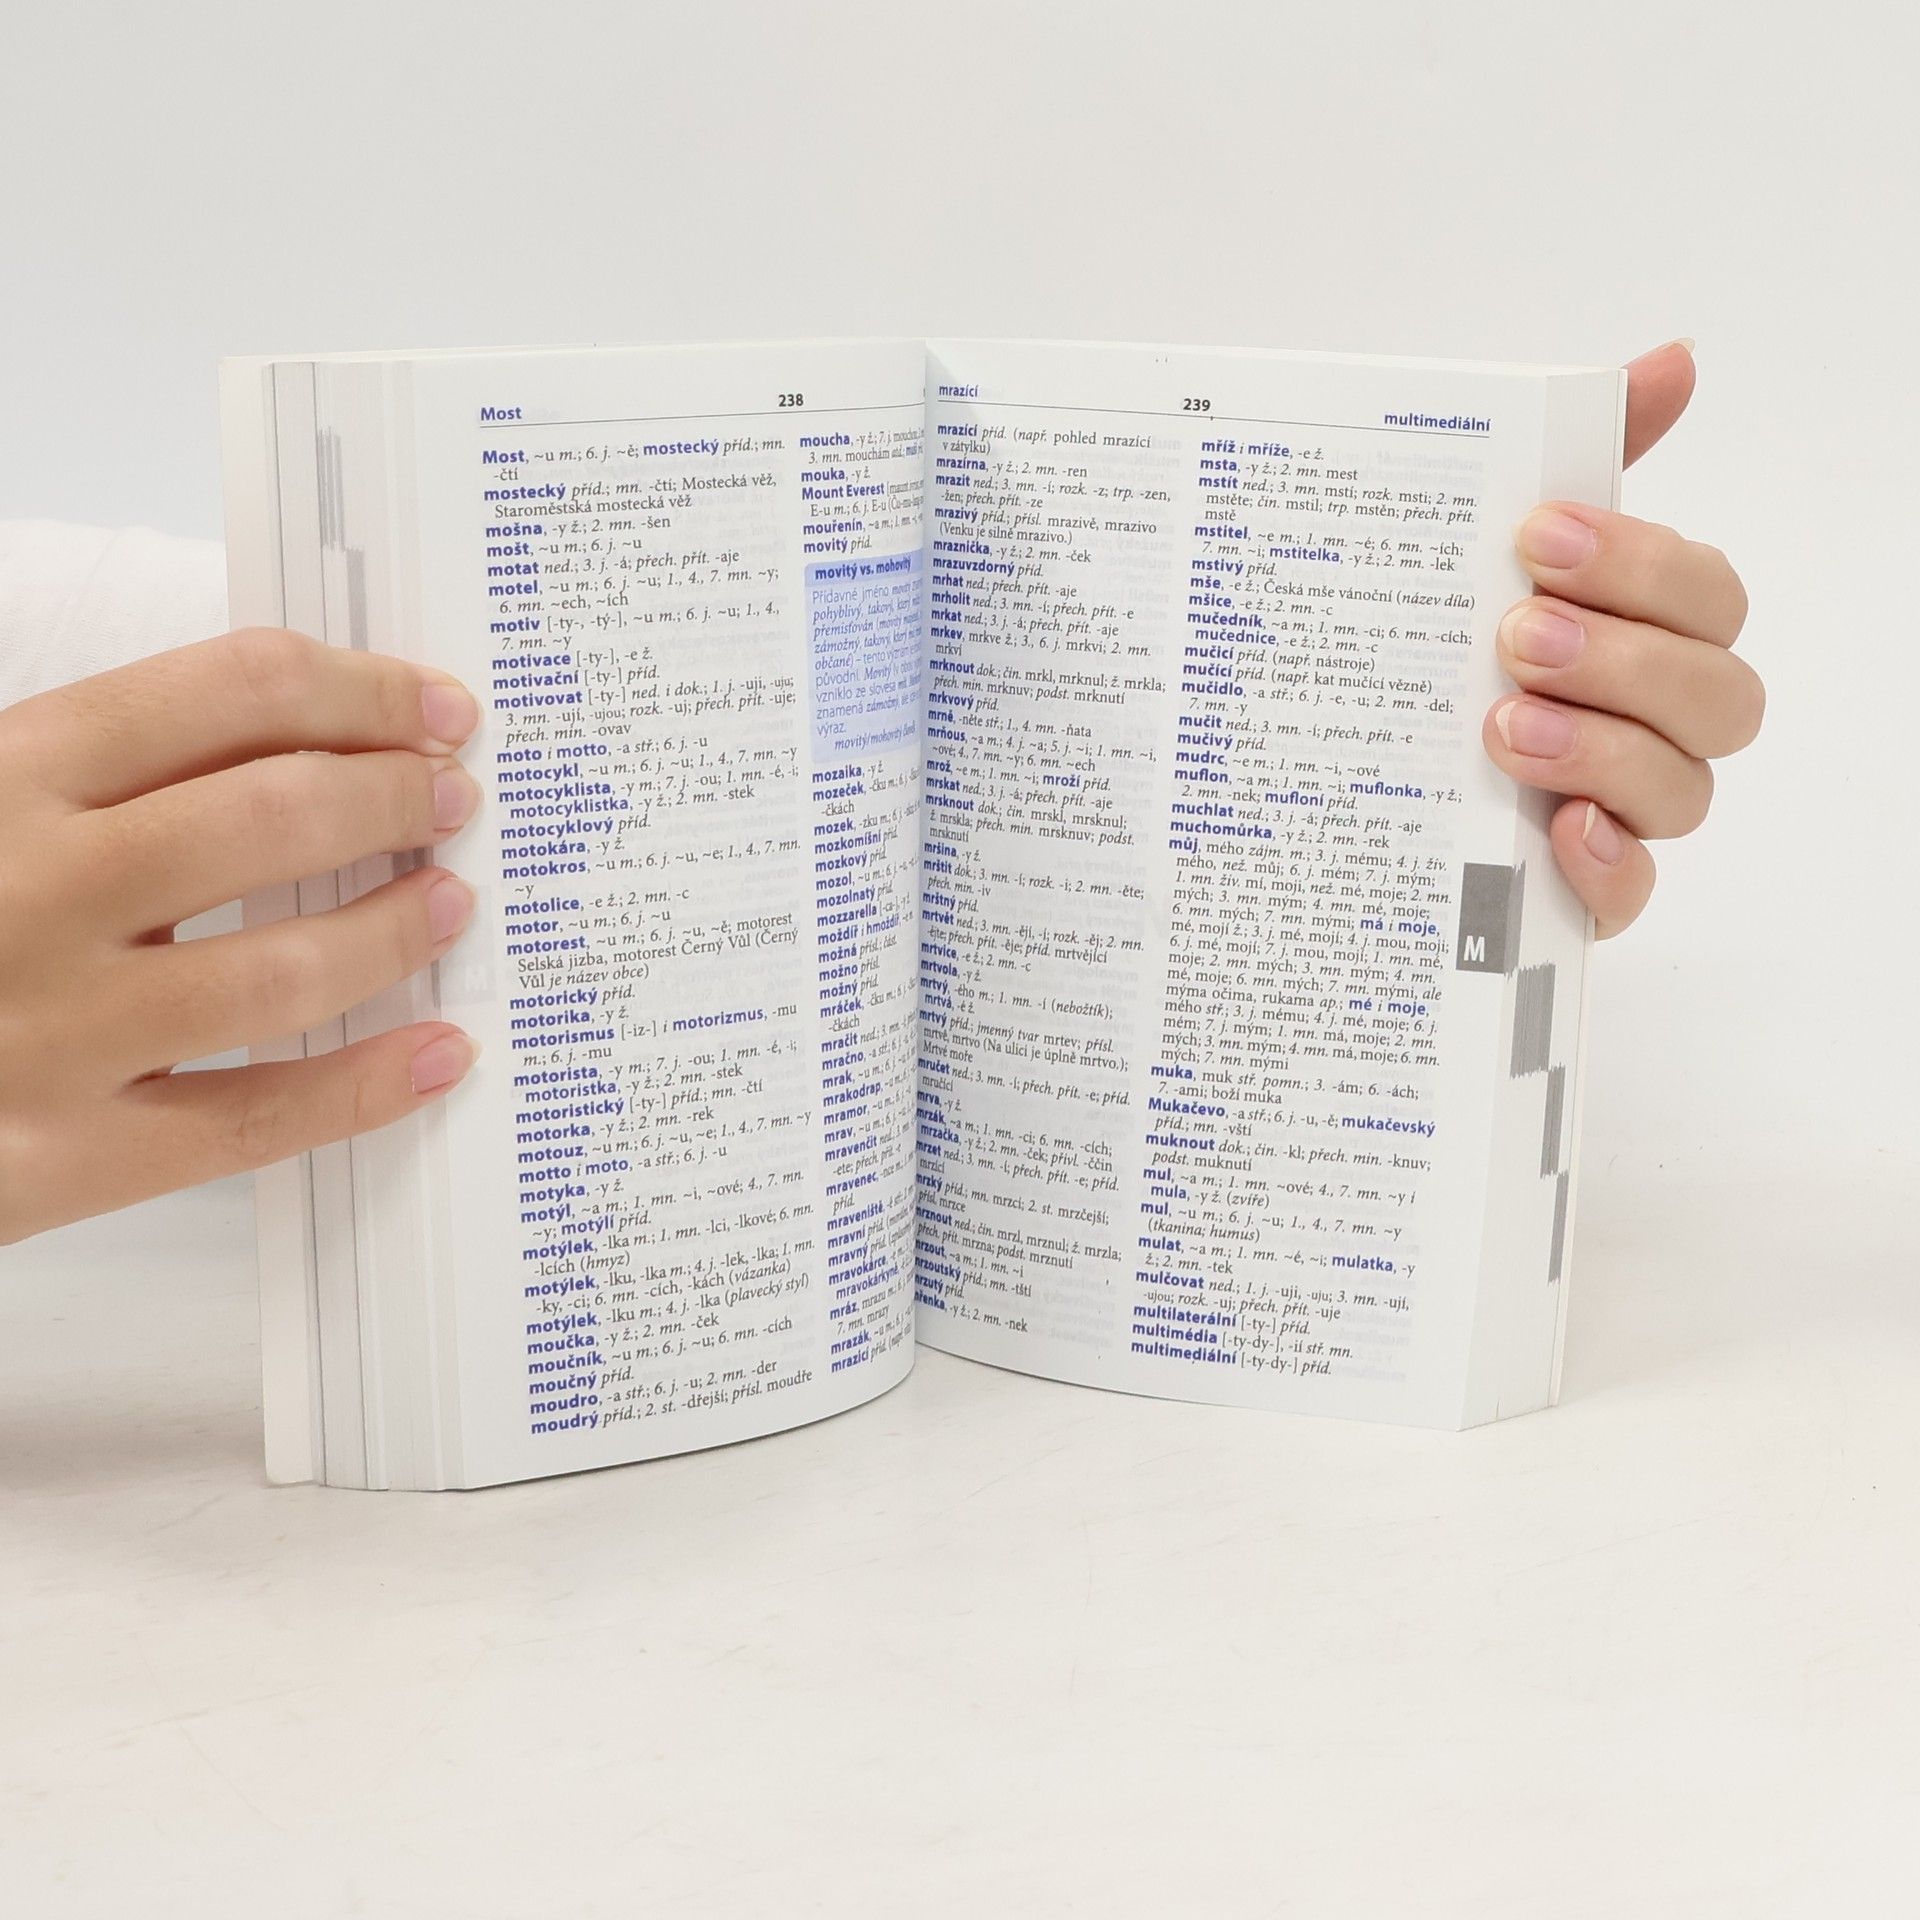 Most
238
Most, ~u m.; 6. j. ~ě; mostecký příd.; mn.
-čtí
mostecký příd.; mn. -čtí; Mostecká věž,
Staroměstská mostecká věž
mošna, -y ž.; 2. mn. -šen
mošt, ~u m.; 6. j. ~u
motat ned.; 3. j. -á; přech. přít. -aje
motel, ~u m.; 6. j. ~u; 1., 4., 7. mn. ~y;
6. mn. ~ech, ~ích
motiv [-ty-, -tý-], ~u m.; 6. j. ~u; 1., 4.,
7. mn. ~y
motivace [-ty-], -e ž.
motivační [-ty-] příd.
motivovat [-ty-] ned. i dok.; 1. j. -uji, -uju;
3. mn. -ují, -ujou; rozk. -uj; přech. přít. -uje;
přech. min. -ovav
moto i motto, -a stř.; 6. j. -u
motocykl, ~u m.; 6. j. ~u; 1., 4., 7. mn. ~y
motocyklista, -y m.; 7. j. -ou; 1. mn. -é, -i;
motocyklistka, -y ž.; 2. mn. -stek
motocyklový příd.
motokára, -y ž.
motokros, ~u m.; 6. j. ~u, ~e; 1., 4., 7. mn.
~y
motolice, -e ž.; 2. mn. -c
motor, ~u m.; 6. j. ~u
motorest, ~u m.; 6. j. ~u, ~ě; motorest
Selská jizba, motorest Černý Vůl (Černý
Vůl je název obce)
motorický příd.
motorika, -y ž.
motorismus [-iz-] i motorizmus, -mu
m.; 6. j. -mu
motorista, -y m.; 7. j. -ou; 1. mn. -é, -i;
motoristka, -y ž.; 2. mn. -stek
motoristický [-ty-] příd.; mn. -čtí
motorka, -y ž.; 2. mn. -rek
motouz, ~u m.; 6. j. ~u, ~e; 1., 4., 7. mn. ~y
motto i moto, -a stř.; 6. j. -u
motyka, -y ž.
motýl, ~a m.; 1. mn. ~i, ~ové; 4., 7. mn.
~y; motýlí příd.
motýlek, -lka m.; 1. mn. -lci, -lkové; 6. mn.
-lcích (hmyz)
motýlek, -lku, -lka m.; 4. j. -lek, -lka; 1. mn.
-ky, -ci; 6. mn. -cích, -kách (vázanka)
motýlek, -lku m.; 4. j. -lka (plavecký styl)
moučka, -y ž.; 2. mn. -ček
moučník, ~u m.; 6. j. ~u; 6. mn. -cích
moučný příd.
moudro, -a stř.; 6. j. -u; 2. mn. -der
moudrý příd.; 2. st. -dřejší; přísl. moudře
moucha, -y ž.; 7. j.
3. mn. mouchám
mouka, -y ž.
Mount Everest
E-u m.; 6. j. E-u
mouřenín, ~a m.; 1. mn.
movitý příd.
movitý vs. mohovitý
Přídavné jméno movitý
pohyblivý, takový, který
přemisťován (movitý
zámožný, takový, který
občané) – tento význam
původní. Movitý
vzniklo ze slovesa
znamená zámožný,
výraz.
movitý/mohovitý
mozaika, -y ž.
mozeček, -čku m.; 6. j.
-čkách
mozek, -zku m.; 6. j.
mozkomíšní příd.
mozkový příd.
mozol, ~u m.; 6. j.
mozolnatý příd.
mozzarella [-ca-], -y ž.
moždíř i hmoždíř,
možná přísl.; část.
možno přísl.
možný příd.
mráček, -čku m.; 6. j.
-čkách
mračit ned.; 3. mn.
mračno, -a stř.; 6. j.
mrak, ~u m.; 6. j.
mrakodrap, ~u m.;
mramor, ~u m.; 6. j.
mrav, ~u m.; 6. j.
mravenčit ned.; 3. mn.
-ete; přech. přít. -e
mravenec, -nce m.;
příd.
mraveniště, -ě stř.;
mravní příd.
mravný příd.
mravokárce, -e m.;
mravokárkyně,
mráz, mrazu m.; 6. j.
7. mn. mrazy
mrazák, ~u m.; 6. j.
mrazicí příd.
mrazící
239
multimediální
mrazící příd. (např. pohled mrazící
v zátylku)
mrazírna, -y ž.; 2. mn. -ren
mrazit ned.; 3. mn. -í; rozk. -z; trp. -zen,
-žen; přech. přít. -ze
mrazivý příd.; přísl. mrazivě, mrazivo
(Venku je silně mrazivo.)
mraznička, -y ž.; 2. mn. -ček
mrazuvzdorný příd.
mrhat ned.; přech. přít. -aje
mrholit ned.; 3. mn. -í; přech. přít. -e
mrkat ned.; 3. j. -á; přech. přít. -aje
mrkev, mrkve ž.; 3., 6. j. mrkvi; 2. mn.
mrkví
mrknout dok.; čin. mrkl, mrknul; ž. mrkla;
přech. min. mrknuv; podst. mrknutí
mrkvový příd.
mrně, -něte stř.; 1., 4. mn. -ňata
mrňous, ~a m.; 4. j. ~a; 5. j. ~i; 1. mn. ~i,
~ové; 4., 7. mn. ~y; 6. mn. ~ech
mrož, ~e m.; 1. mn. ~i; mroží příd.
mrskat ned.; 3. j. -á; přech. přít. -aje
mrsknout dok.; čin. mrskl, mrsknul;
ž. mrskla; přech. min. mrsknuv; podst.
mrsknutí
mršina, -y ž.
mrštit dok.; 3. mn. -í; rozk. -i; 2. mn. -ěte;
přech. min. -iv
mrštný příd.
mrtvět ned.; 3. mn. -ějí, -í; rozk. -ěj; 2. mn.
-ějte; přech. přít. -ěje; příd. mrtvějící
mrtvice, -e ž.; 2. mn. -c
mrtvola, -y ž.
mrtvý, -ého m.; 1. mn. -í (nebožtík);
mrtvá, -é ž.
mrtvý příd.; jmenný tvar mrtev; přísl.
mrtvě, mrtvo (Na ulici je úplně mrtvo.);
Mrtvé moře
mručet ned.; 3. mn. -í; přech. přít. -e; příd.
mručící
mrva, -y ž.
mrzák, ~a m.; 1. mn. -ci; 6. mn. -cích;
mrzačka, -y ž.; 2. mn. -ček; přivl. -ččin
mrzet ned.; 3. mn. -í; přech. přít. -e; příd.
mrzící
mrzký příd.; mn. mrzcí; 2. st. mrzčejší;
přísl. mrzce
mrznout ned.; čin. mrzl, mrznul; ž. mrzla;
přech. přít. mrzna; podst. mrznutí
mrzout, ~a m.; 1. mn. ~i
mrzoutský příd.; mn. -tští
mrzutý příd.
mřenka, -y ž.; 2. mn. -nek
mříž i mříže, -e ž.
msta, -y ž.; 2. mn. mest
mstít ned.; 3. mn. mstí; rozk. msti; 2. mn.
mstěte; čin. mstil; trp. mstěn; přech. přít.
mstě
mstitel, ~e m.; 1. mn. ~é; 6. mn. ~ích;
7. mn. ~i; mstitelka, -y ž.; 2. mn. -lek
mstivý příd.
mše, -e ž.; Česká mše vánoční (název díla)
mšice, -e ž.; 2. mn. -c
mučedník, ~a m.; 1. mn. -ci; 6. mn. -cích;
mučednice, -e ž.; 2. mn. -c
mučicí příd. (např. nástroje)
mučící příd. (např. kat mučící vězně)
mučidlo, -a stř.; 6. j. -e, -u; 2. mn. -del;
7. mn. -y
mučit ned.; 3. mn. -í; přech. přít. -e
mučivý příd.
mudrc, ~e m.; 1. mn. ~i, ~ové
muflon, ~a m.; 1. mn. ~i; muflonka, -y ž.;
2. mn. -nek; mufloní příd.
muchlat ned.; 3. j. -á; přech. přít. -aje
muchomůrka, -y ž.; 2. mn. -rek
můj, mého zájm. m.; 3. j. mému; 4. j. živ.
mého, než. můj; 6. j. mém; 7. j. mým;
1. mn. živ. mí, moji, než. mé, moje; 2. mn.
mých; 3. mn. mým; 4. mn. mé, moje;
6. mn. mých; 7. mn. mými; má i moje,
mé, mojí ž.; 3. j. mé, mojí; 4. j. mou, moji;
6. j. mé, mojí; 7. j. mou, mojí; 1. mn. mé,
moje; 2. mn. mých; 3. mn. mým; 4. mn.
mé, moje; 6. mn. mých; 7. mn. mými, ale
mýma očima, rukama ap.; mé i moje,
mého stř.; 3. j. mému; 4. j. mé, moje; 6. j.
mém; 7. j. mým; 1. mn. má, moje; 2. mn.
mých; 3. mn. mým; 4. mn. má, moje; 6. mn.
mých; 7. mn. mými
muka, muk stř. pomn.; 3. -ám; 6. -ách;
7. -ami; boží muka
Mukačevo, -a stř.; 6. j. -u, -ě; mukačevský
příd.; mn. -vští
muknout dok.; čin. -kl; přech. min. -knuv;
podst. muknutí
mul, ~a m.; 1. mn. ~ové; 4., 7. mn. ~y i
mula, -y ž. (zvíře)
mul, ~u m.; 6. j. ~u; 1., 4., 7. mn. ~y
(tkanina; humus)
mulat, ~a m.; 1. mn. ~é, ~i; mulatka, -y
ž.; 2. mn. -tek
mulčovat ned.; 1. j. -uji, -uju; 3. mn. -ují,
-ujou; rozk. -uj; přech. přít. -uje
multilaterální [-ty-] příd.
multimédia [-ty-dy-], -ií stř. mn.
multimediální [-ty-dy-] příd.
M